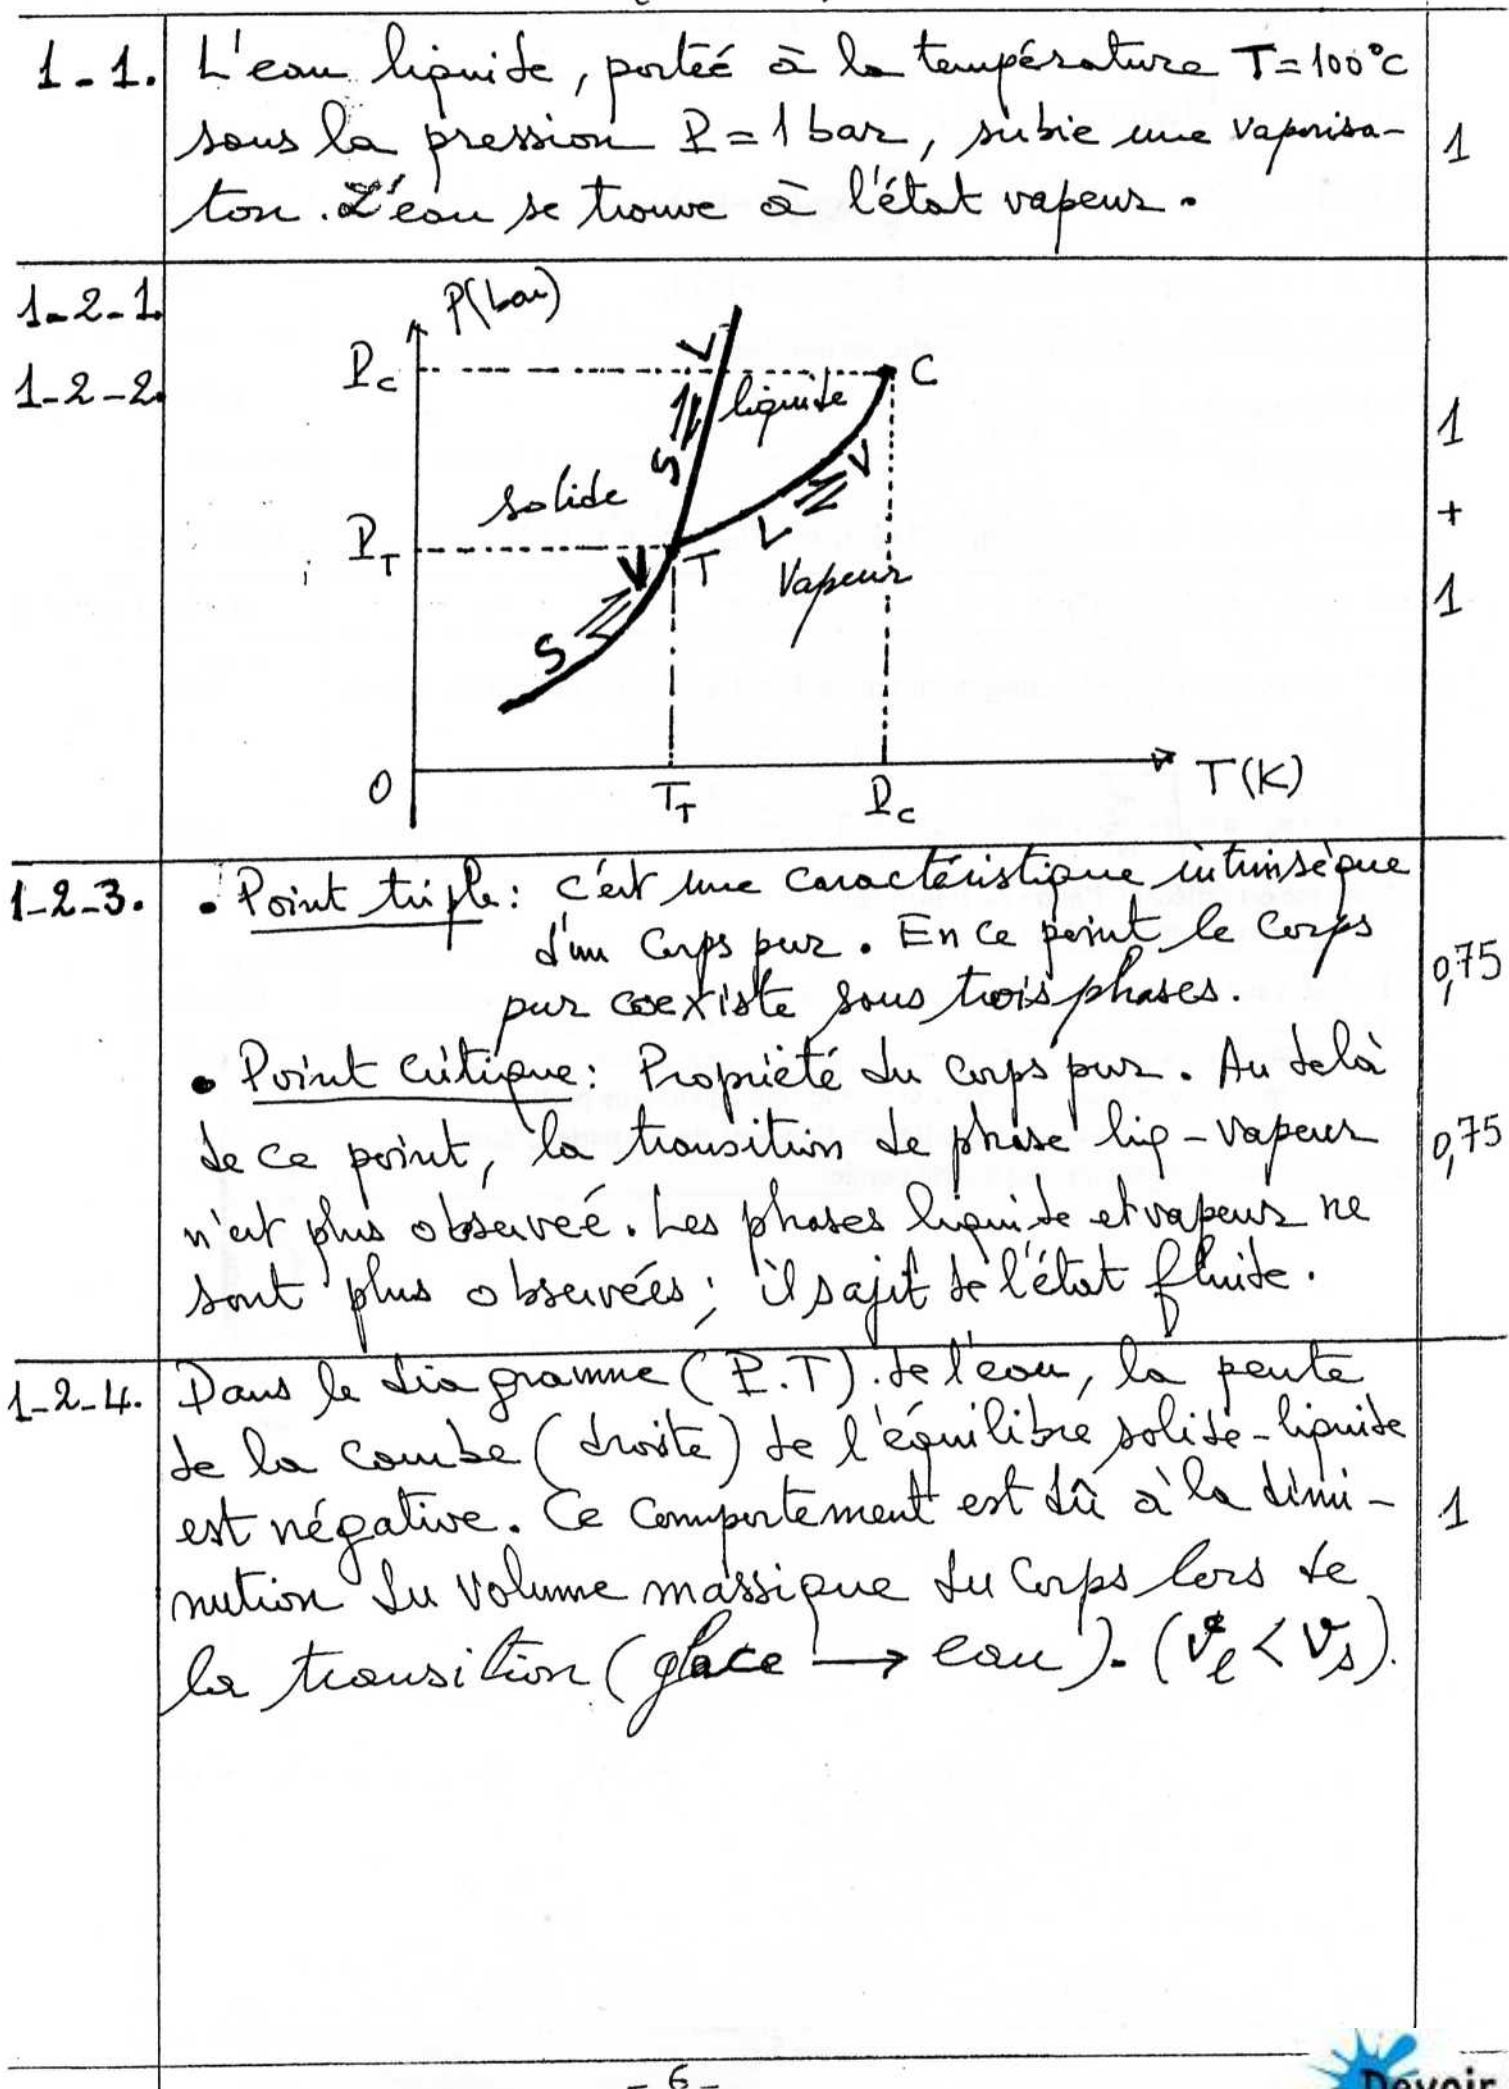 1-1. L'eau liquide, portéé à la température T=100°C
sous la pression P=1 bar, subie une vaporisa-
ton. L'eau se trouve à l'état vapeur.
1
1-2-1.
1-2-2.
P(bar)
P_C
C
liquide
S ⇌ L
solide
L ⇌ V
P_T
T
Vapeur
S ⇌ V
O
T_T
P_C
T(K)
1
+
1
1-2-3. • Point triple: c'est une caractéristique intrinsèque
d'un corps pur. En ce point le corps
pur coexiste sous trois phases.
0,75
• Point critique: Propriété du corps pur. Au delà
de ce point, la transition de phase liq-vapeur
n'est plus observeé. Les phases liquide et vapeur ne
sont plus observées; il sajit de l'état fluide.
0,75
1-2-4. Dans le diagramme (P.T). de l'eau, la pente
de la courbe (droite) de l'équilibre solide-liquide
est négative. Ce comportement est dû à la dimi-
nution du volume massique du corps lors de
la transition (glace → eau). (v_l < v_s).
1
- 6 -
Devoir